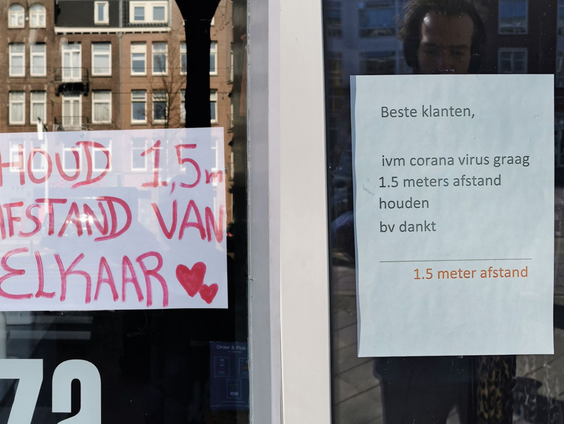 HOUD 1,5m
AFSTAND VAN
ELKAAR
73
Beste klanten,
ivm corana virus graag
1.5 meters afstand
houden
bv dankt
1.5 meter afstand